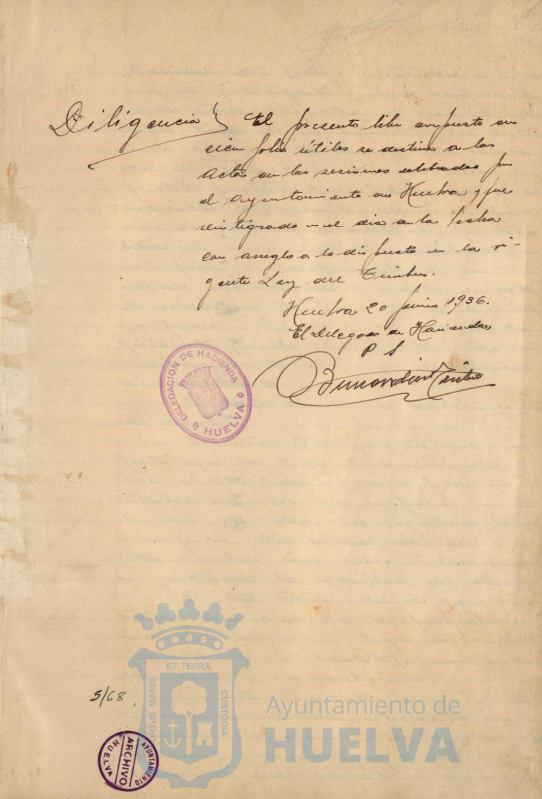 Diligencia} El presente libro compuesto de
cien folios útiles se destina a las
Actas de las sesiones celebradas por
el Ayuntamiento de Huelva y fue
reintegrado en el dia de la fecha
con arreglo a lo dispuesto en la vi-
gente Ley del Timbre.
Huelva 20 Junio 1936.
El Delegado de Hacienda
P S
DELEGACION DE HACIENDA
HUELVA
ET TERRA
PORTUS MARIS
CUSTODIA
5/68
Ayuntamiento de
HUELVA
AYUNTAMIENTO
ARCHIVO
HUELVA